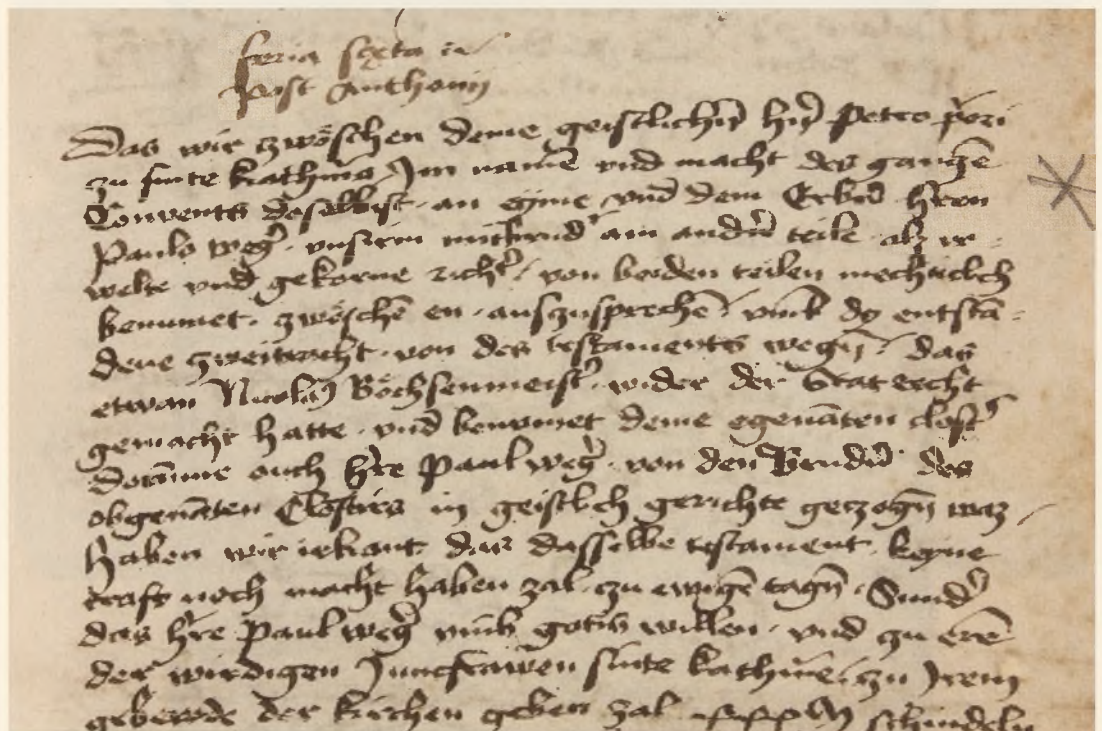 feria sexta
post Anthonij
Das wir zwöschen deme geistlichen hern Petro priori
zu sinte kathrina Im namen vnd macht des ganczen
Conuents doselbist · an eyme vnd dem Erben herren
Paulo weg · vnsirm mitbrud am andern teile als ir
welte vnd gekorne richt · von beiden teilen mechticlich
benumet · zwöschen en · auszusprechen vmb dy entstan
dene zweitracht · von des testaments wegen · das
etwan Nicolaus Böchsenmeister · wider der Stat recht
gemacht hatte · vnd benumet deme egenanten closter
dorumme auch herre Paul weg · von den Brudern des
obgenanten Closters in geistlich gerichte geczogen waz
haben wir irkant das dasselbe testament keyne
craft noch macht haben zal zu ewigen tagen · Sunder
das herre Paul weg vmb gotis willen · vnd zu eren
der wirdigen Juncfrawen sinte kathrine zu Irem
gebewde der kirchen geben zal schindeln